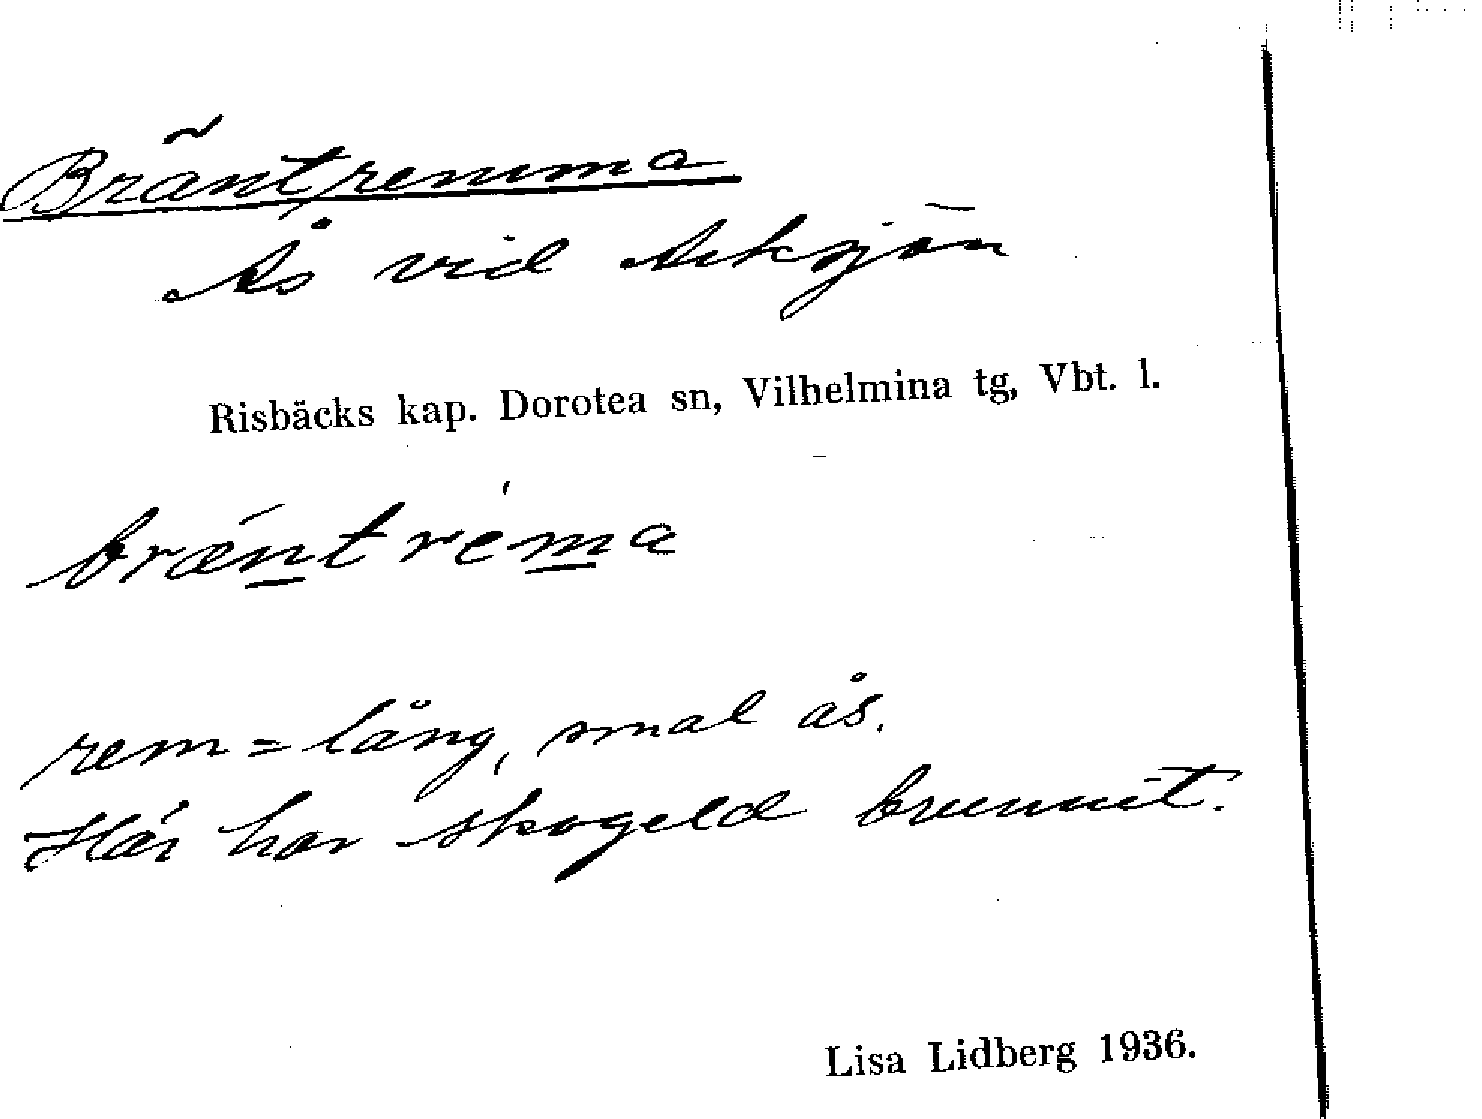 Bräntremma
Ås vid Arksjön
Risbäcks kap. Dorotea sn, Vilhelmina tg, Vbt. l.
brænt rema
rem = lång, smal ås.
Här har skogeld brunnit.
Lisa Lidberg 1936.